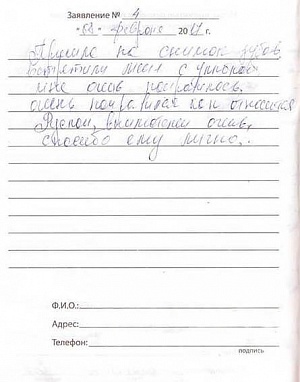 Заявление № 4
"08" февраля 2017 г.
Пришла на снимок зубов,
встретили меня с улыбкой
мне очень понравилось,
очень понравилось как относился
Руслан, внимателен очень,
спасибо ему лично.
Ф.И.О.:
Адрес:
Телефон:
подпись